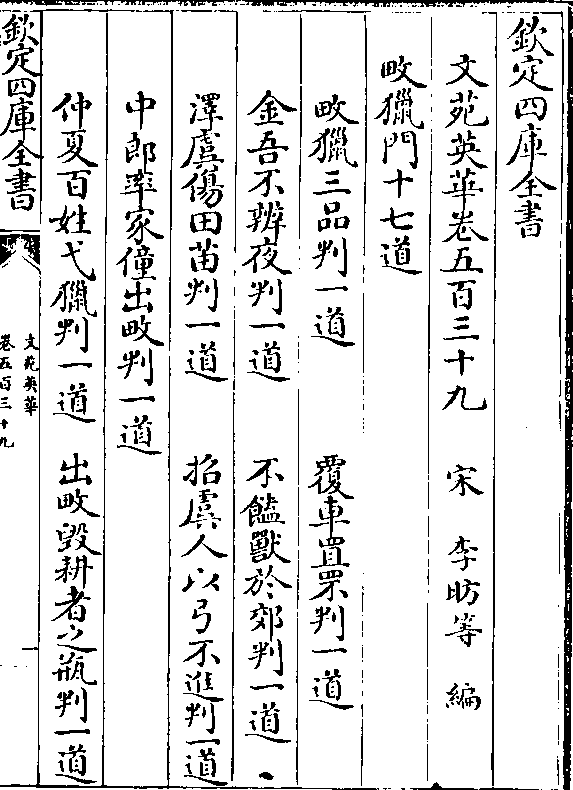 欽定四庫全書
文苑英華卷五百三十九　宋　李昉等　編
畋獵門十七道
畋獵三品判一道　覆車罝罘判一道
金吾不辨夜判一道　不饁獸於郊判一道
澤虞傷田苗判一道　招虞人以弓不進判一道
中郎率家僮出畋判一道
仲夏百姓弋獵判一道　出畋毀耕者之瓶判一道
欽定四庫全書
文苑英華
卷五百三十九
一